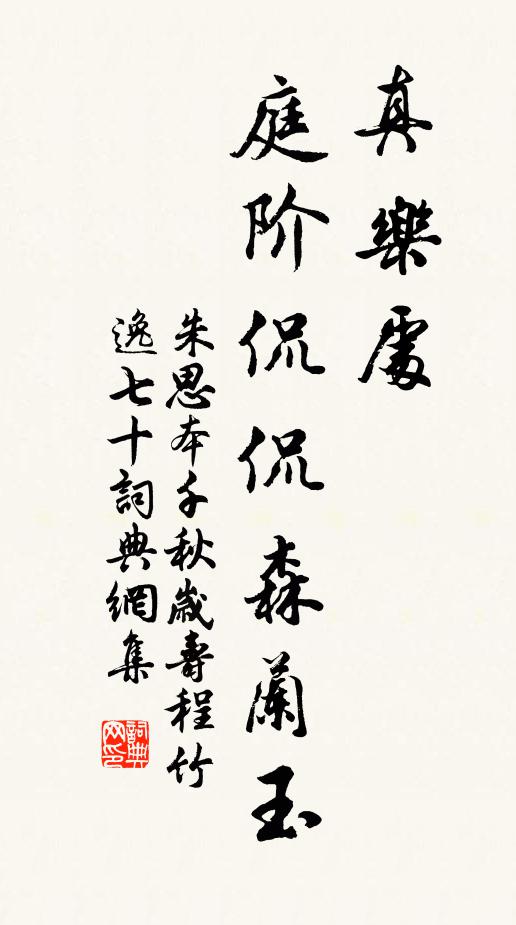 真樂處
庭阶侃侃森蘭玉
朱思本千秋歲壽程竹
逸七十詞典網集
詞典网印